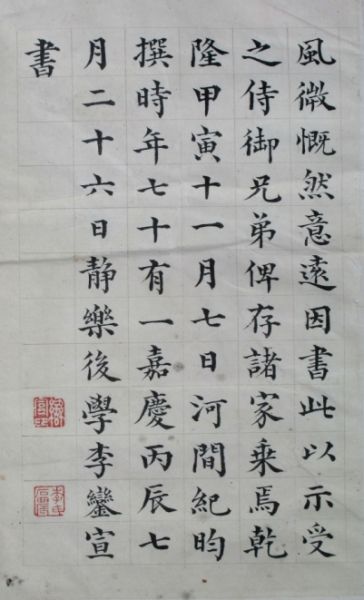 風微慨然意遠因書此以示受
之侍御兄弟俾存諸家乘焉乾
隆甲寅十一月七日河間紀昀
撰時年七十有一嘉慶丙辰七
月二十六日靜樂後學李鑾宣
書